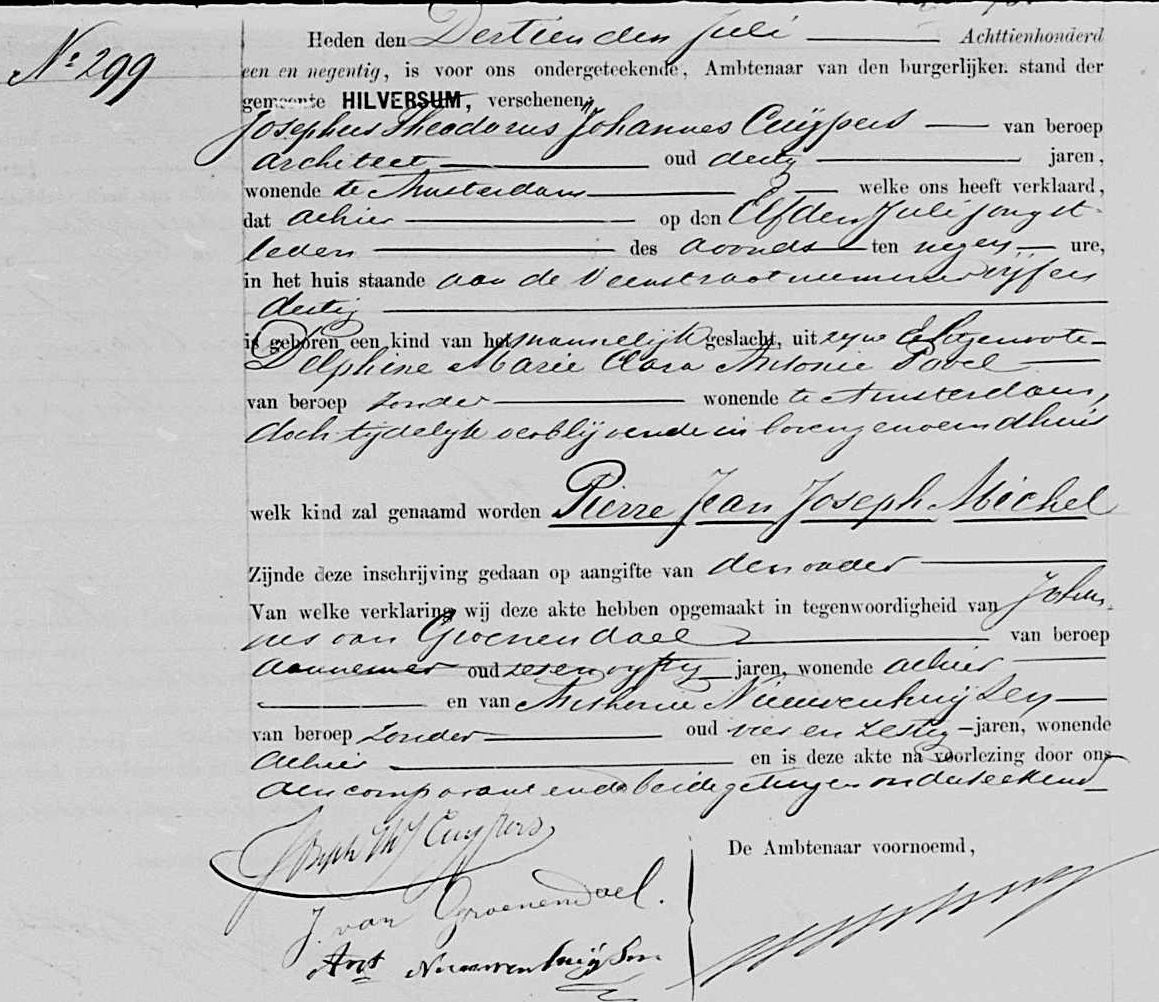 Nº 299
Heden den Dertienden Juli Achttienhonderd
een en negentig, is voor ons ondergeteekende, Ambtenaar van den burgerlijken stand der
gemeente HILVERSUM, verschenen:
Josephus Theodorus Johannes Cuÿpers van beroep
architect oud dertig jaren,
wonende te Amsterdam welke ons heeft verklaard,
dat alhier op den Elfden Juli jongst-
leden des avonds ten negen ure,
in het huis staande aan de Veenstraat nummer vijf en
dertig
is geboren een kind van het mannelijk geslacht, uit zijne Echtgenoote
Delphine Marie Clara Antonie Povel
van beroep zonder wonende te Amsterdam,
doch tijdelijk verblijvende in bovengenoemd huis
welk kind zal genaamd worden Pierre Jean Joseph Michel
Zijnde deze inschrijving gedaan op aangifte van den vader
Van welke verklaring wij deze akte hebben opgemaakt in tegenwoordigheid van Johan-
nes van Groenendael van beroep
aannemer oud zes en vijftig jaren, wonende alhier
en van Anthonie Nieuwenhuijsen
van beroep zonder oud vier en zestig jaren, wonende
alhier en is deze akte na voorlezing door ons
den comparant en de beide getuigen onderteekend
Joseph Th J Cuypers
De Ambtenaar voornoemd,
J. van Groenendael.
Ant Nieuwenhuijsen